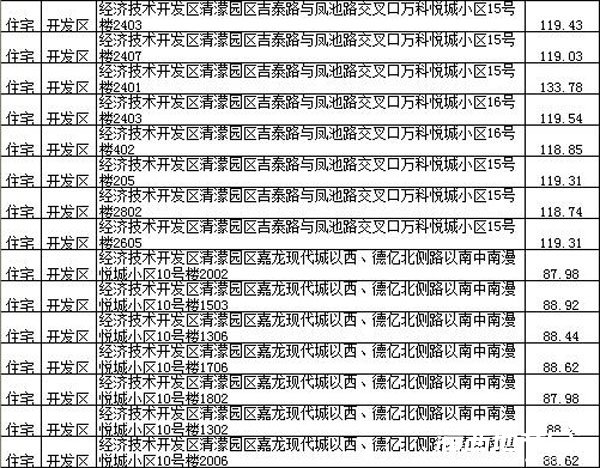 经济技术开发区清濛园区吉泰路与凤池路交叉口万科悦城小区15号
住宅 开发区 楼2403 119.43
经济技术开发区清濛园区吉泰路与凤池路交叉口万科悦城小区15号
住宅 开发区 楼2407 119.03
经济技术开发区清濛园区吉泰路与凤池路交叉口万科悦城小区15号
住宅 开发区 楼2401 133.78
经济技术开发区清濛园区吉泰路与凤池路交叉口万科悦城小区16号
住宅 开发区 楼2403 119.54
经济技术开发区清濛园区吉泰路与凤池路交叉口万科悦城小区16号
住宅 开发区 楼402 118.85
经济技术开发区清濛园区吉泰路与凤池路交叉口万科悦城小区15号
住宅 开发区 楼205 119.31
经济技术开发区清濛园区吉泰路与凤池路交叉口万科悦城小区15号
住宅 开发区 楼2802 118.74
经济技术开发区清濛园区吉泰路与凤池路交叉口万科悦城小区15号
住宅 开发区 楼2605 119.31
经济技术开发区清濛园区嘉龙现代城以西、德亿北侧路以南中南漫
住宅 开发区 悦城小区10号楼2002 87.98
经济技术开发区清濛园区嘉龙现代城以西、德亿北侧路以南中南漫
住宅 开发区 悦城小区10号楼1503 88.92
经济技术开发区清濛园区嘉龙现代城以西、德亿北侧路以南中南漫
住宅 开发区 悦城小区10号楼1306 88.44
经济技术开发区清濛园区嘉龙现代城以西、德亿北侧路以南中南漫
住宅 开发区 悦城小区10号楼1706 88.62
经济技术开发区清濛园区嘉龙现代城以西、德亿北侧路以南中南漫
住宅 开发区 悦城小区10号楼1802 87.98
经济技术开发区清濛园区嘉龙现代城以西、德亿北侧路以南中南漫
住宅 开发区 悦城小区10号楼1302 88
经济技术开发区清濛园区嘉龙现代城以西、德亿北侧路以南中南漫
住宅 开发区 悦城小区10号楼2006 88.62